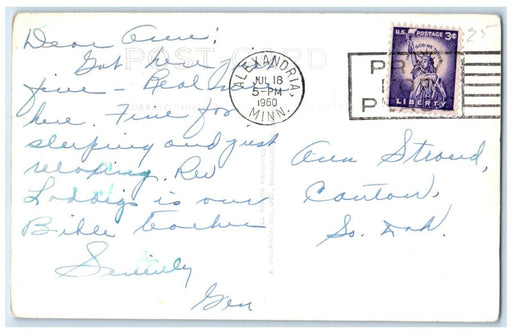 25
POST CARD
Dear Ann:
Got here just
fine - Real nice
here. Fine for
sleeping and just
relaxing. Rev
is our
Bible teacher
Sincerely
Gen
ALEXANDRIA,
JUL 18
5-PM
1960
MINN.
U.S. POSTAGE 3¢
IN GOD WE TRUST
LIBERTY
P
P
Ann Stroud,
Canton,
So. Dak.